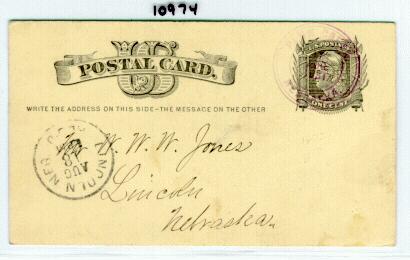 10974
US
POSTAL CARD.
WRITE THE ADDRESS ON THIS SIDE-THE MESSAGE ON THE OTHER
U.S. POSTAGE
ONE CENT
W. W. W. Jones
Lincoln
Nebraska.
LINCOLN NEB
AUG
18